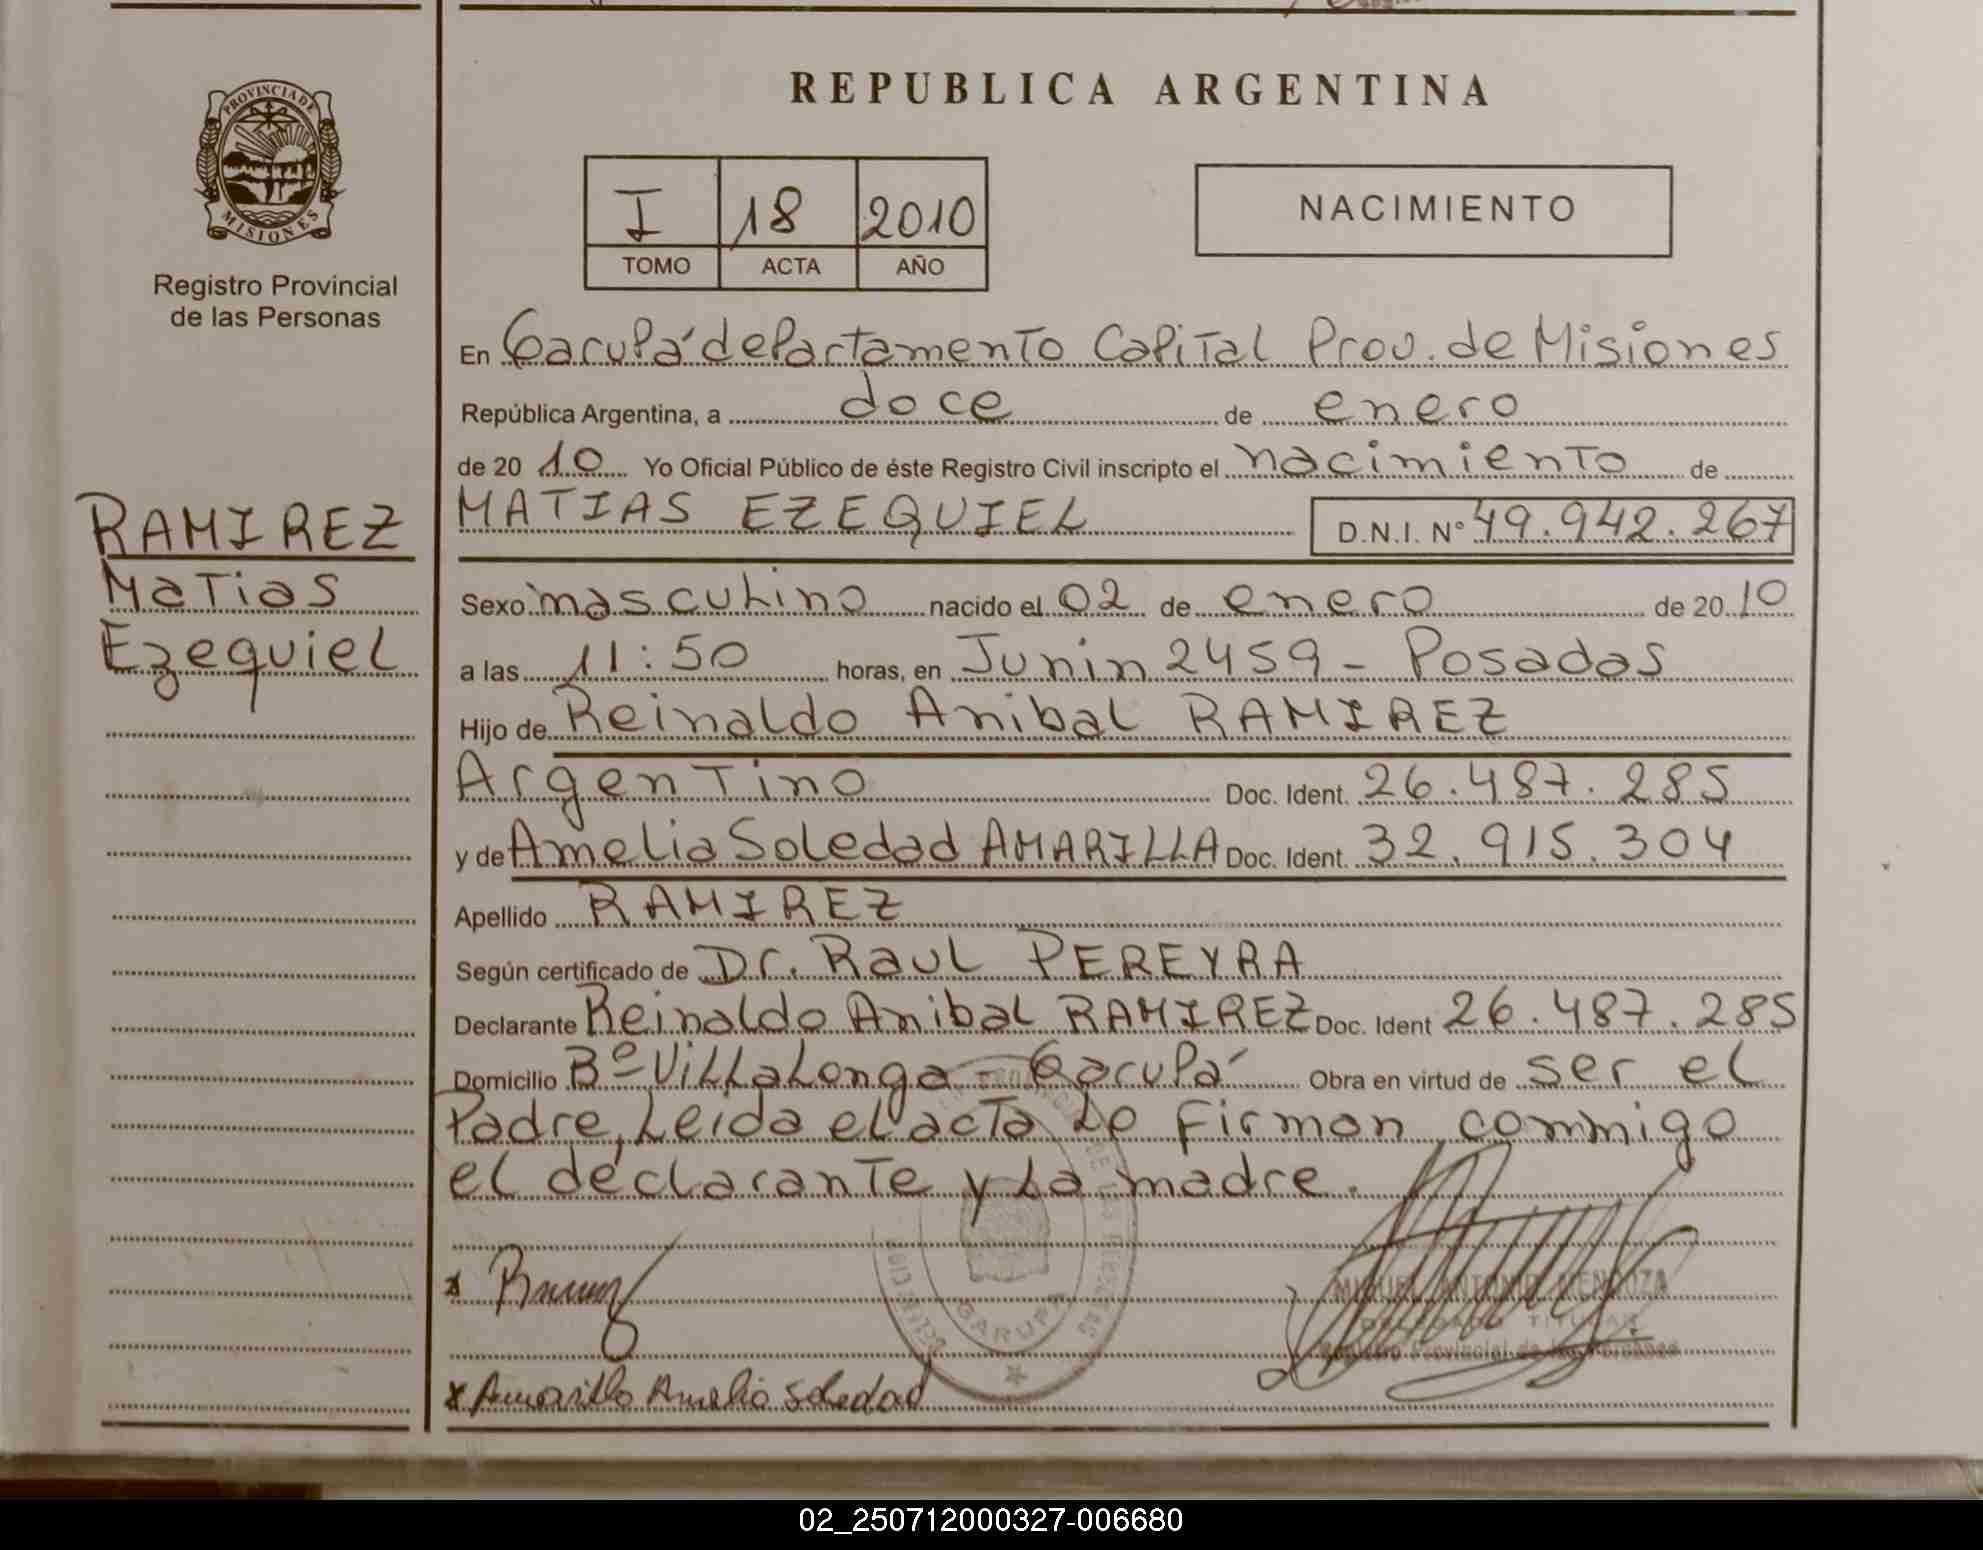 REPUBLICA ARGENTINA
PROVINCIA DE
MISIONES
Registro Provincial
de las Personas
I 18 2010
TOMO ACTA AÑO
NACIMIENTO
En Garupá departamento Capital Prov. de Misiones
República Argentina, a doce de enero
de 20 10 Yo Oficial Público de éste Registro Civil inscripto el nacimiento de
MATIAS EZEQUIEL D.N.I. Nº 49.942.267
RAMIREZ
Matias
Ezequiel
Sexo masculino nacido el 02 de enero de 20 10
a las 11:50 horas, en Junin 2459 - Posadas
Hijo de Reinaldo Anibal RAMIREZ
Argentino Doc. Ident. 26.487.285
y de Amelia Soledad AMARILLA Doc. Ident. 32.915.304
Apellido RAMIREZ
Según certificado de Dr. Raul PEREYRA
Declarante Reinaldo Anibal RAMIREZ Doc. Ident 26.487.285
Domicilio Bº Villalonga - Garupá Obra en virtud de ser el
Padre, Leida el acta Lo firman commigo
el declarante y La madre.
MIGUEL ANTONIO MENDOZA
DELEGADO TITULAR
Registro Provincial de las Personas
GARUPA
x Amarilla Amelia Soledad
02_250712000327-006680